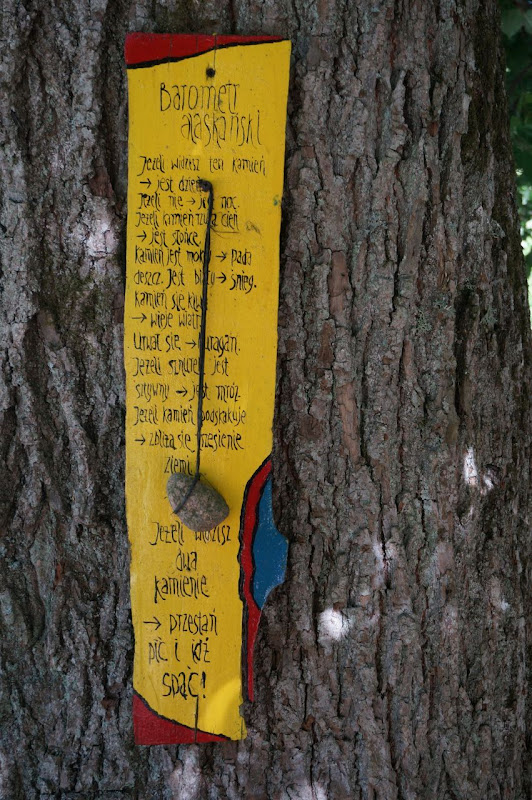 Barometr
alaskański
Jeżeli widzisz ten kamień
→ jest dzień
Jeżeli nie → jest noc.
Jeżeli kamień rzuca cień
→ jest słońce.
kamień jest mokry → pada
deszcz. Jest biały → śnieg.
kamień się kiwa
→ wieje wiatr
Urwał się → huragan.
Jeżeli sznurek jest
sztywny → jest mróz
Jeżeli kamień podskakuje
→ zbliża się trzęsienie
ziemi
Jeżeli widzisz
dwa
kamienie
→ przestań
pić i idź
spać!